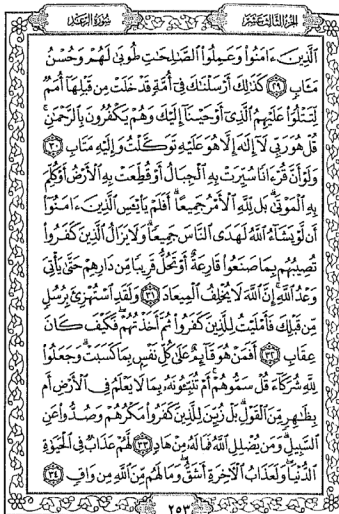 الجزء الثالث عشر
سورة الرعد
الَّذِينَ ءَامَنُوا وَعَمِلُوا الصَّٰلِحَٰتِ طُوبَىٰ لَهُمْ وَحُسْنُ
مَـَٔابٍ ٢٩ كَذَٰلِكَ أَرْسَلْنَٰكَ فِىٓ أُمَّةٍ قَدْ خَلَتْ مِن قَبْلِهَآ أُمَمٌ
لِّتَتْلُوَا عَلَيْهِمُ الَّذِىٓ أَوْحَيْنَآ إِلَيْكَ وَهُمْ يَكْفُرُونَ بِالرَّحْمَٰنِ ۚ
قُلْ هُوَ رَبِّى لَآ إِلَٰهَ إِلَّا هُوَ عَلَيْهِ تَوَكَّلْتُ وَإِلَيْهِ مَتَابِ ٣٠
وَلَوْ أَنَّ قُرْءَانًا سُيِّرَتْ بِهِ الْجِبَالُ أَوْ قُطِّعَتْ بِهِ الْأَرْضُ أَوْ كُلِّمَ
بِهِ الْمَوْتَىٰ ۗ بَل لِّلَّهِ الْأَمْرُ جَمِيعًا ۗ أَفَلَمْ يَا۟يْـَٔسِ الَّذِينَ ءَامَنُوٓا
أَن لَّوْ يَشَآءُ اللَّهُ لَهَدَى النَّاسَ جَمِيعًا ۗ وَلَا يَزَالُ الَّذِينَ كَفَرُوا
تُصِيبُهُم بِمَا صَنَعُوا قَارِعَةٌ أَوْ تَحُلُّ قَرِيبًا مِّن دَارِهِمْ حَتَّىٰ يَأْتِىَ
وَعْدُ اللَّهِ ۚ إِنَّ اللَّهَ لَا يُخْلِفُ الْمِيعَادَ ٣١ وَلَقَدِ اسْتُهْزِئَ بِرُسُلٍ
مِّن قَبْلِكَ فَأَمْلَيْتُ لِلَّذِينَ كَفَرُوا ثُمَّ أَخَذْتُهُمْ ۖ فَكَيْفَ كَانَ
عِقَابِ ٣٢ أَفَمَنْ هُوَ قَآئِمٌ عَلَىٰ كُلِّ نَفْسٍۭ بِمَا كَسَبَتْ ۗ وَجَعَلُوا
لِلَّهِ شُرَكَآءَ قُلْ سَمُّوهُمْ ۚ أَمْ تُنَبِّـُٔونَهُۥ بِمَا لَا يَعْلَمُ فِى الْأَرْضِ أَم
بِظَٰهِرٍ مِّنَ الْقَوْلِ ۗ بَلْ زُيِّنَ لِلَّذِينَ كَفَرُوا مَكْرُهُمْ وَصُدُّوا عَنِ
السَّبِيلِ ۗ وَمَن يُضْلِلِ اللَّهُ فَمَا لَهُۥ مِنْ هَادٍ ٣٣ لَّهُمْ عَذَابٌ فِى الْحَيَوٰةِ
الدُّنْيَا ۖ وَلَعَذَابُ الْآخِرَةِ أَشَقُّ ۖ وَمَا لَهُم مِّنَ اللَّهِ مِن وَاقٍ ٣٤
٢٥٣